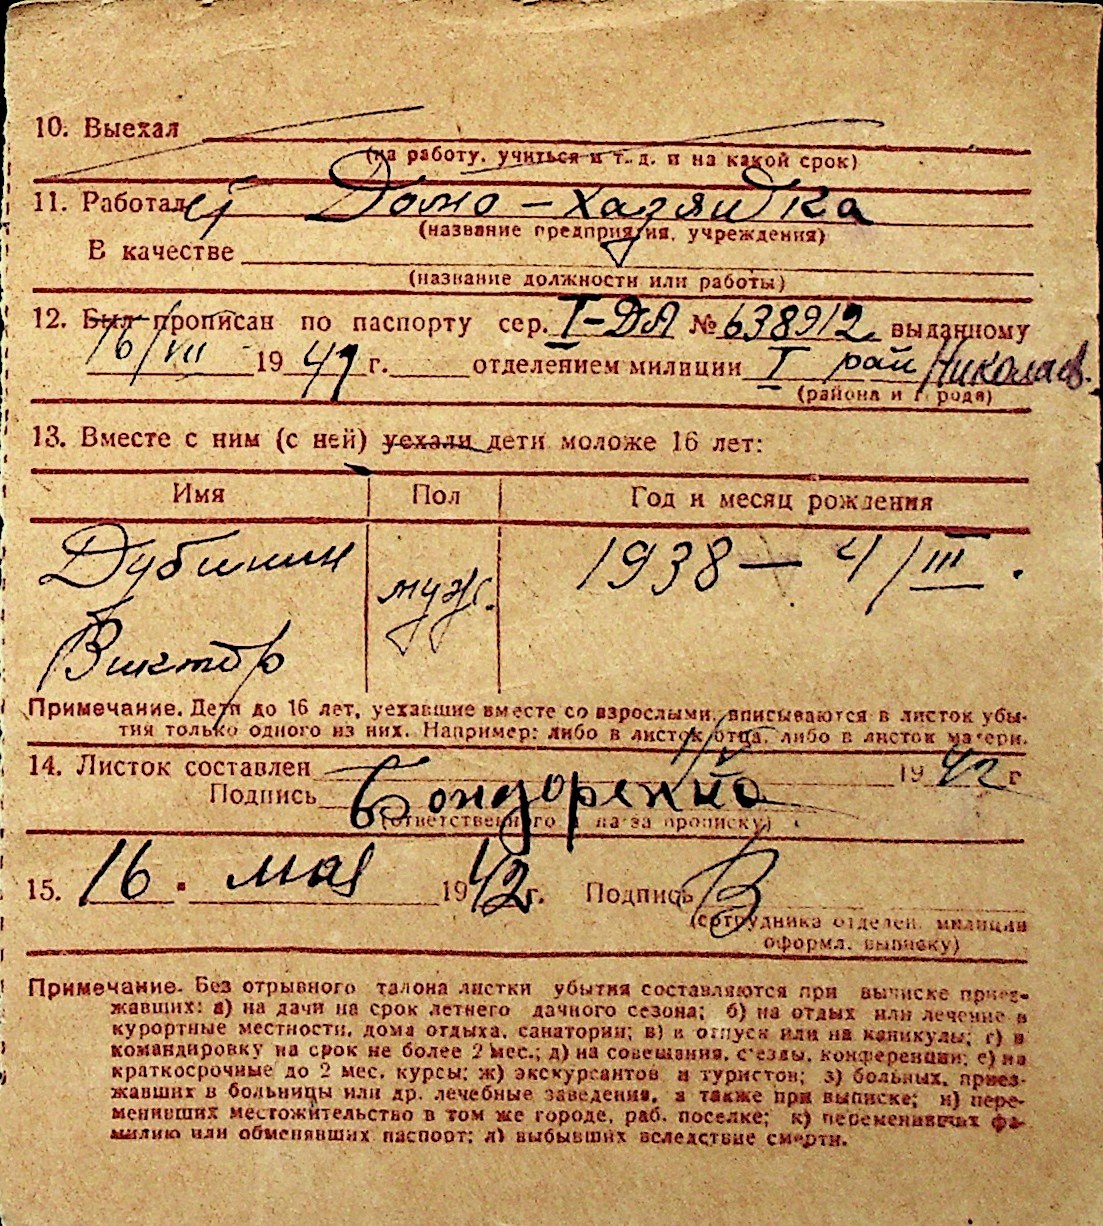 10. Выехал
(на работу, учиться и т. д. и на какой срок)
11. Работал Домо-хазяйка
(название предприятия, учреждения)
В качестве
(название должности или работы)
12. Был прописан по паспорту сер. I-ДЯ № 638912 выданному
16/VII 1941 г. отделением милиции I рай Николаев.
(района и города)
13. Вместе с ним (с ней) уехали дети моложе 16 лет:
Имя Пол Год и месяц рождения
Дубинин муж. 1938 — 4/III.
Виктор
Примечание. Дети до 16 лет, уехавшие вместе со взрослыми, вписываются в листок убы-
тия только одного из них. Например: либо в листок отца, либо в листок матери.
14. Листок составлен 1942 г
Подпись
(ответственного лица за прописку)
15. 16. мая 1942 г. Подпись
(сотрудника отделен. милиции
оформл. выписку)
Примечание. Без отрывного талона листки убытия составляются при выписке приез-
жавших: а) на дачи на срок летнего дачного сезона; б) на отдых или лечение в
курортные местности, дома отдыха, санатории; в) в отпуск или на каникулы; г) в
командировку на срок не более 2 мес.; д) на совещания, съезды, конференции; е) на
краткосрочные до 2 мес. курсы; ж) экскурсантов и туристов; з) больных, приез-
жавших в больницы или др. лечебные заведения, а также при выписке; и) пере-
менивших местожительство в том же городе, раб. поселке; к) переменивших фа-
милию или обменявших паспорт; л) выбывших вследствие смерти.